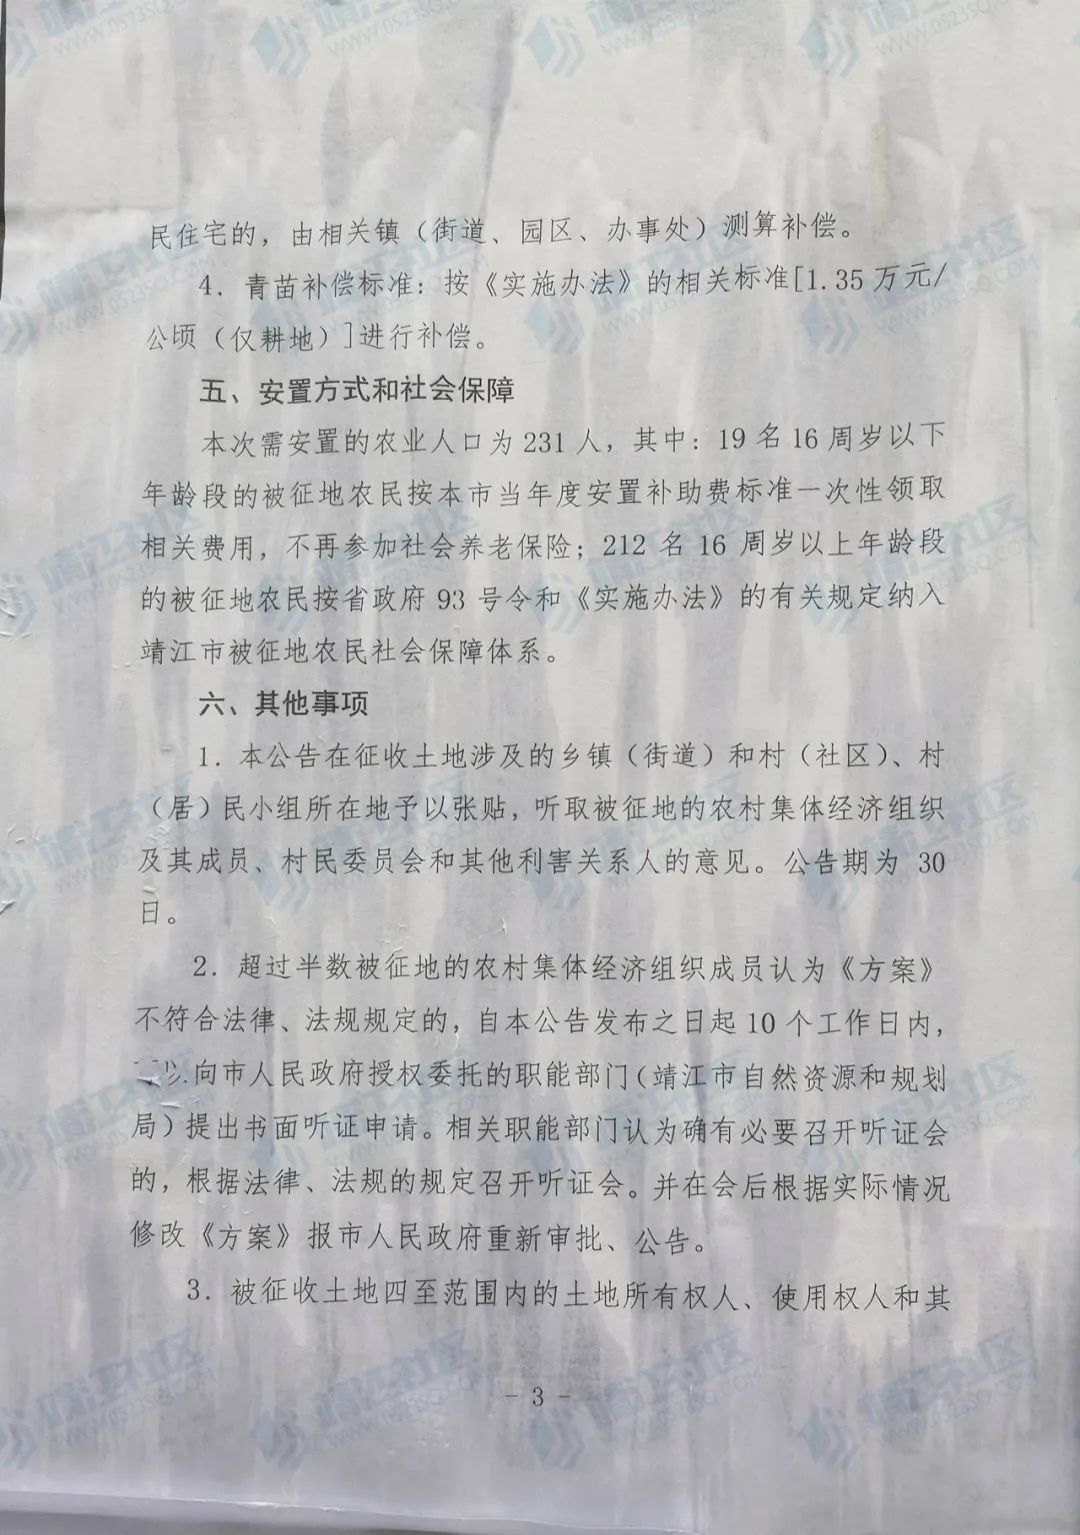 民住宅的，由相关镇（街道、园区、办事处）测算补偿。
4. 青苗补偿标准：按《实施办法》的相关标准[1.35 万元/
公顷（仅耕地）]进行补偿。
五、安置方式和社会保障
本次需安置的农业人口为 231 人，其中：19 名 16 周岁以下
年龄段的被征地农民按本市当年度安置补助费标准一次性领取
相关费用，不再参加社会养老保险；212 名 16 周岁以上年龄段
的被征地农民按省政府 93 号令和《实施办法》的有关规定纳入
靖江市被征地农民社会保障体系。
六、其他事项
1. 本公告在征收土地涉及的乡镇（街道）和村（社区）、村
（居）民小组所在地予以张贴，听取被征地的农村集体经济组织
及其成员、村民委员会和其他利害关系人的意见。公告期为 30
日。
2. 超过半数被征地的农村集体经济组织成员认为《方案》
不符合法律、法规规定的，自本公告发布之日起 10 个工作日内，
向市人民政府授权委托的职能部门（靖江市自然资源和规划
局）提出书面听证申请。相关职能部门认为确有必要召开听证会
的，根据法律、法规的规定召开听证会。并在会后根据实际情况
修改《方案》报市人民政府重新审批、公告。
3. 被征收土地四至范围内的土地所有权人、使用权人和其
- 3 -
靖江社区
WWW.0523SQ.COM